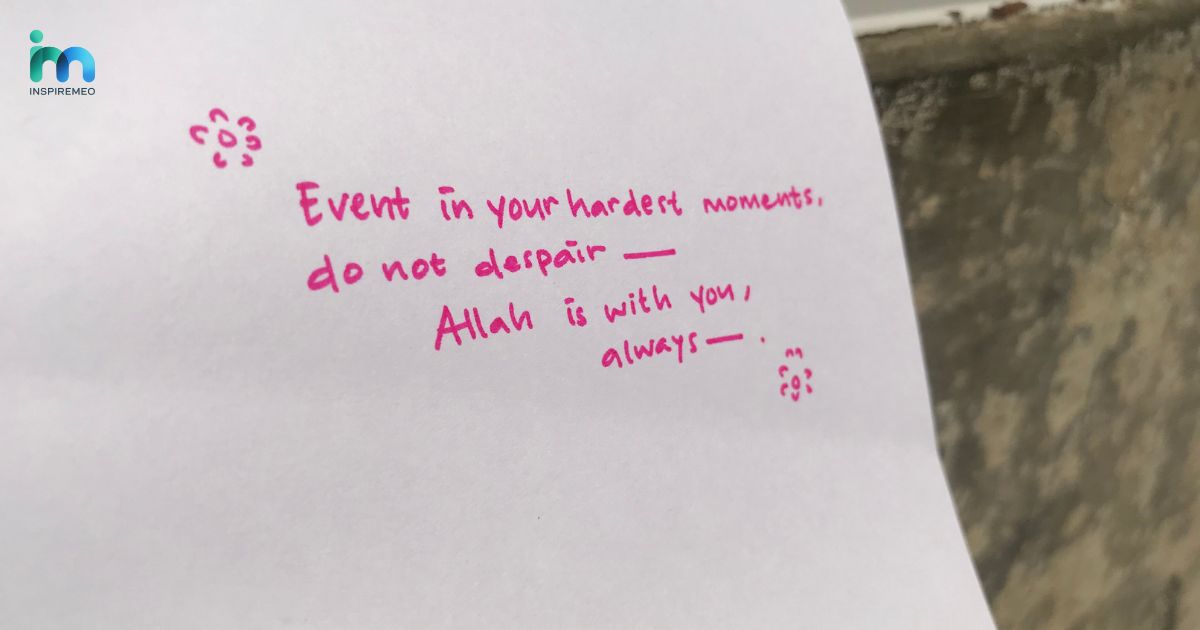 im
INSPIREMEO
Event in your hardest moments,
do not despair —
Allah is with you,
always — .